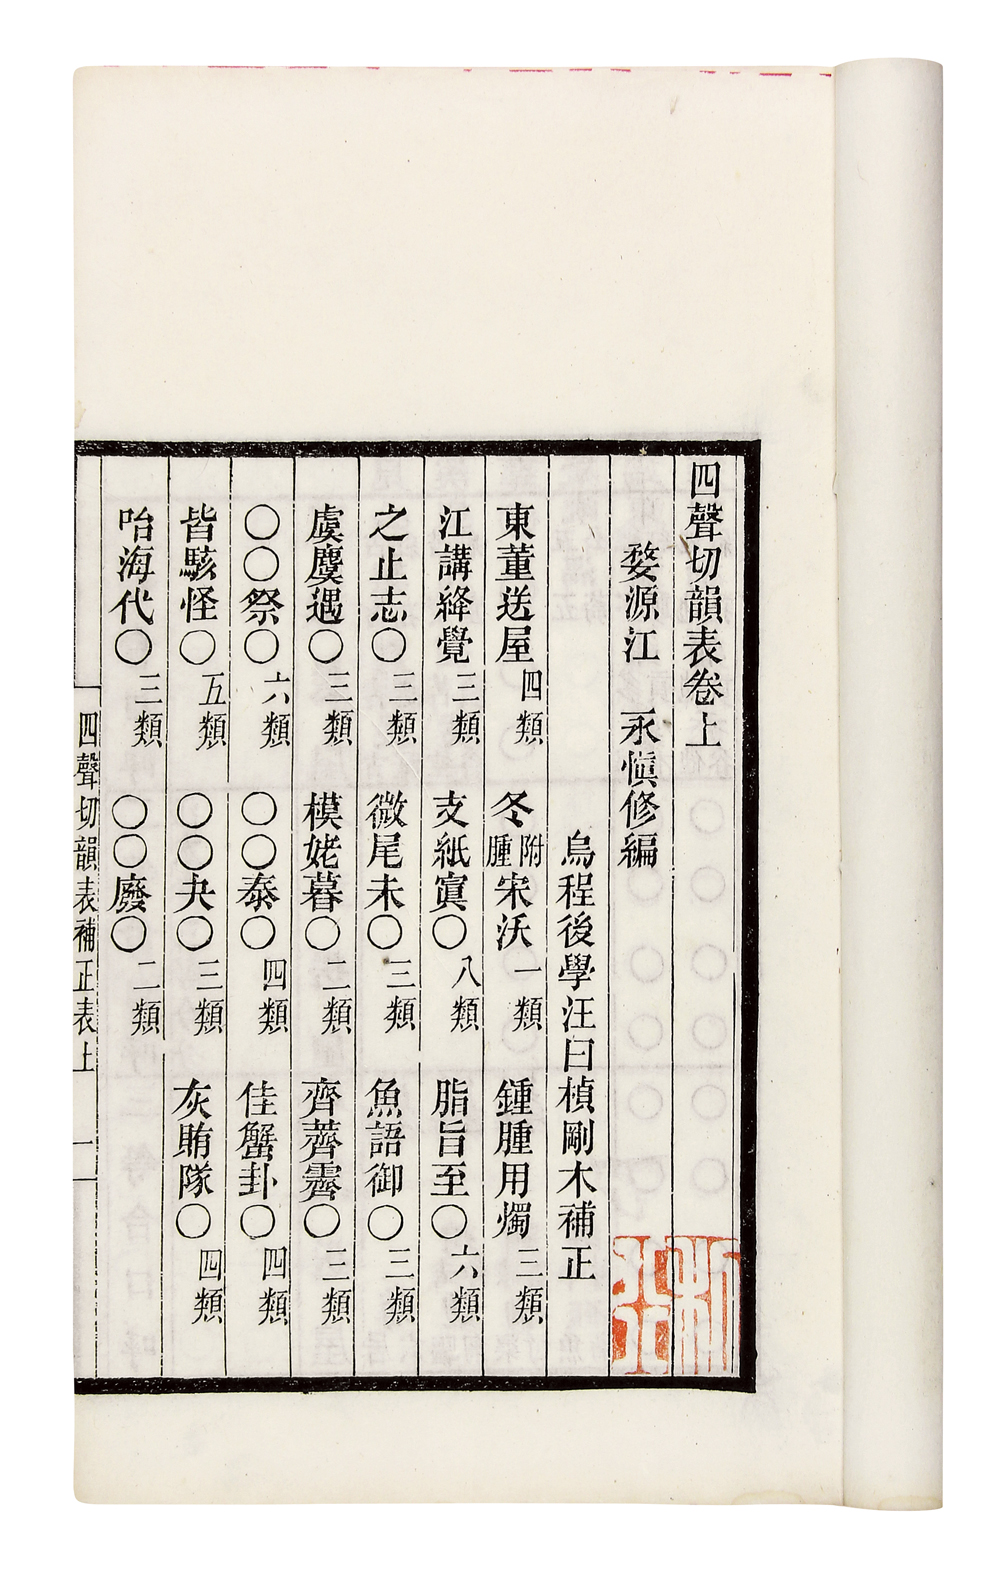 四聲切韻表卷上
婺源江　永慎修編
烏程後學汪曰楨剛木補正
東董送屋四類　冬附腫宋沃一類　鍾腫用燭三類
江講絳覺三類　支紙寘〇八類　脂旨至〇六類
之止志〇三類　微尾未〇三類　魚語御〇三類
虞麌遇〇三類　模姥暮〇二類　齊薺霽〇三類
〇〇祭〇六類　〇〇泰〇四類　佳蟹卦〇四類
皆駭怪〇五類　〇〇夬〇三類　灰賄隊〇四類
咍海代〇三類　〇〇廢〇二類
四聲切韻表補正表上　一